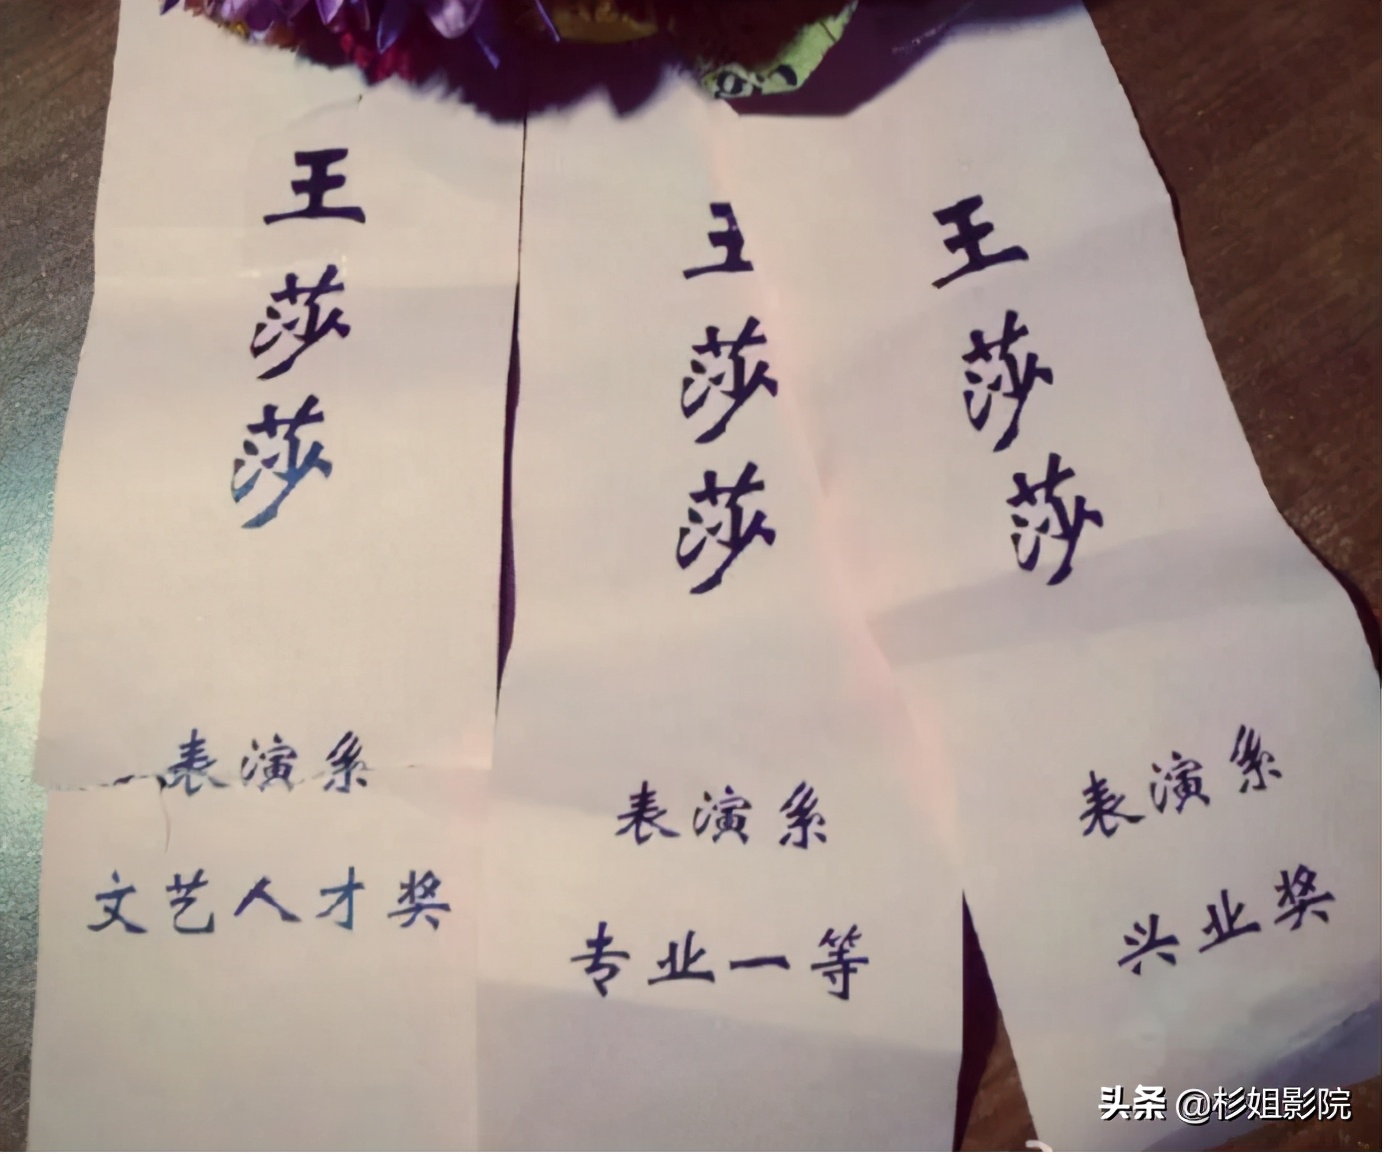 王莎莎
表演系
文艺人才奖
王莎莎
表演系
专业一等
王莎莎
表演系
兴业奖
头条 @杉姐影院